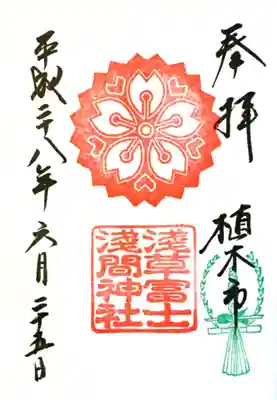 奉拝
植木市
淺草富士
淺間神社
平成二十八年六月二十五日